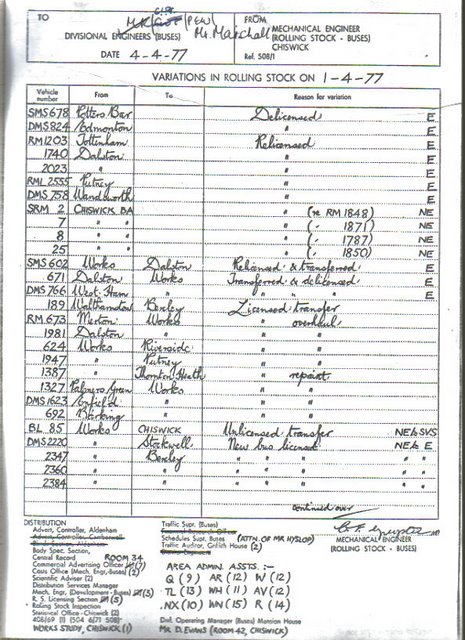 TO
DIVISIONAL ENGINEERS (BUSES)
DATE 4-4-77
(PEW)
Mr. Marshall
FROM
MECHANICAL ENGINEER
(ROLLING STOCK - BUSES)
CHISWICK
Ref. 508/1
VARIATIONS IN ROLLING STOCK ON 1-4-77
Vehicle number From To Reason for variation
SMS 678 Potters Bar Delicensed E
DMS 824 Edmonton " E
RM 1203 Tottenham Relicensed E
1740 Dalston " E
2023 " " E
RML 2555 Putney " E
DMS 758 Wandsworth " E
SRM 2 CHISWICK BA " (re RM 1848) NE
7 " " " ( " 1871) NE
8 " " " ( " 1787) NE
25 " " " ( " 1850) NE
SMS 602 Works Dalston Relicensed & transferred E
671 Dalston Works Transferred & delicensed E
DMS 766 West Ham " " " E
189 Walthamstow Bexley Licensed transfer
RM 673 Merton Works " overhaul
1981 Dalston " " "
624 Works Riverside " "
1947 " Putney " "
1387 " Thornton Heath " repaint
1327 Palmers Green Works " "
DMS 1623 Enfield " " "
692 Barking " " "
BL 85 Works CHISWICK Unlicensed transfer NE to SVS
DMS 2220 " Stockwell New bus licensed NE to E
2347 " Bexley " " " " "
2360 " " " " " " "
2384 " " " " " " "
continued over
MECHANICAL ENGINEER
(ROLLING STOCK - BUSES)
DISTRIBUTION
Advert, Controller, Aldenham
Advert, Controller, Camberwell
Body Spec. Section,
Central Record ROOM 34
Commercial Advertising Officer (7)
Costs Office (Mech. Engr.-Buses) (2)
Scientific Adviser (2)
Distribution Services Manager
Mech. Engr. (Development - Buses) (5)
R. S. Licensing Section (5)
Rolling Stock Inspection
Statistical Office - Chiswick (2)
408/69 (1) (504 6/71 508)
WORKS STUDY, CHISWICK (1)
Traffic Supt. (Buses)
Schedules Supt. Buses (ATTN. OF MR HYSLOP)
Traffic Auditor, Griffith House (2)
AREA ADMIN. ASSTS. :-
Q (9) AR (12) W (12)
TL (13) WH (11) AV (12)
NX (10) WN (15) R (14)
Divl. Operating Manager (Buses) Mansion House
MR D. EVANS (ROOM 42, CHISWICK)